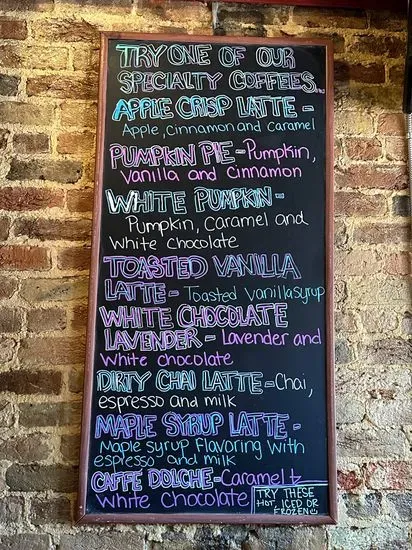 TRY ONE OF OUR
SPECIALTY COFFEES...
APPLE CRISP LATTE -
Apple, cinnamon and caramel
PUMPKIN PIE - Pumpkin,
Vanilla and cinnamon
WHITE PUMPKIN -
Pumpkin, Caramel and
White chocolate
TOASTED VANILLA
LATTE - Toasted vanilla syrup
WHITE CHOCOLATE
LAVENDER - Lavender and
White chocolate
DIRTY CHAI LATTE - Chai,
espresso and milk
MAPLE SYRUP LATTE -
Maple syrup flavoring with
espresso and milk
CAFFE DOLCHE - Caramel +
White Chocolate
TRY THESE
HOT, ICED OR
FROZEN ☺